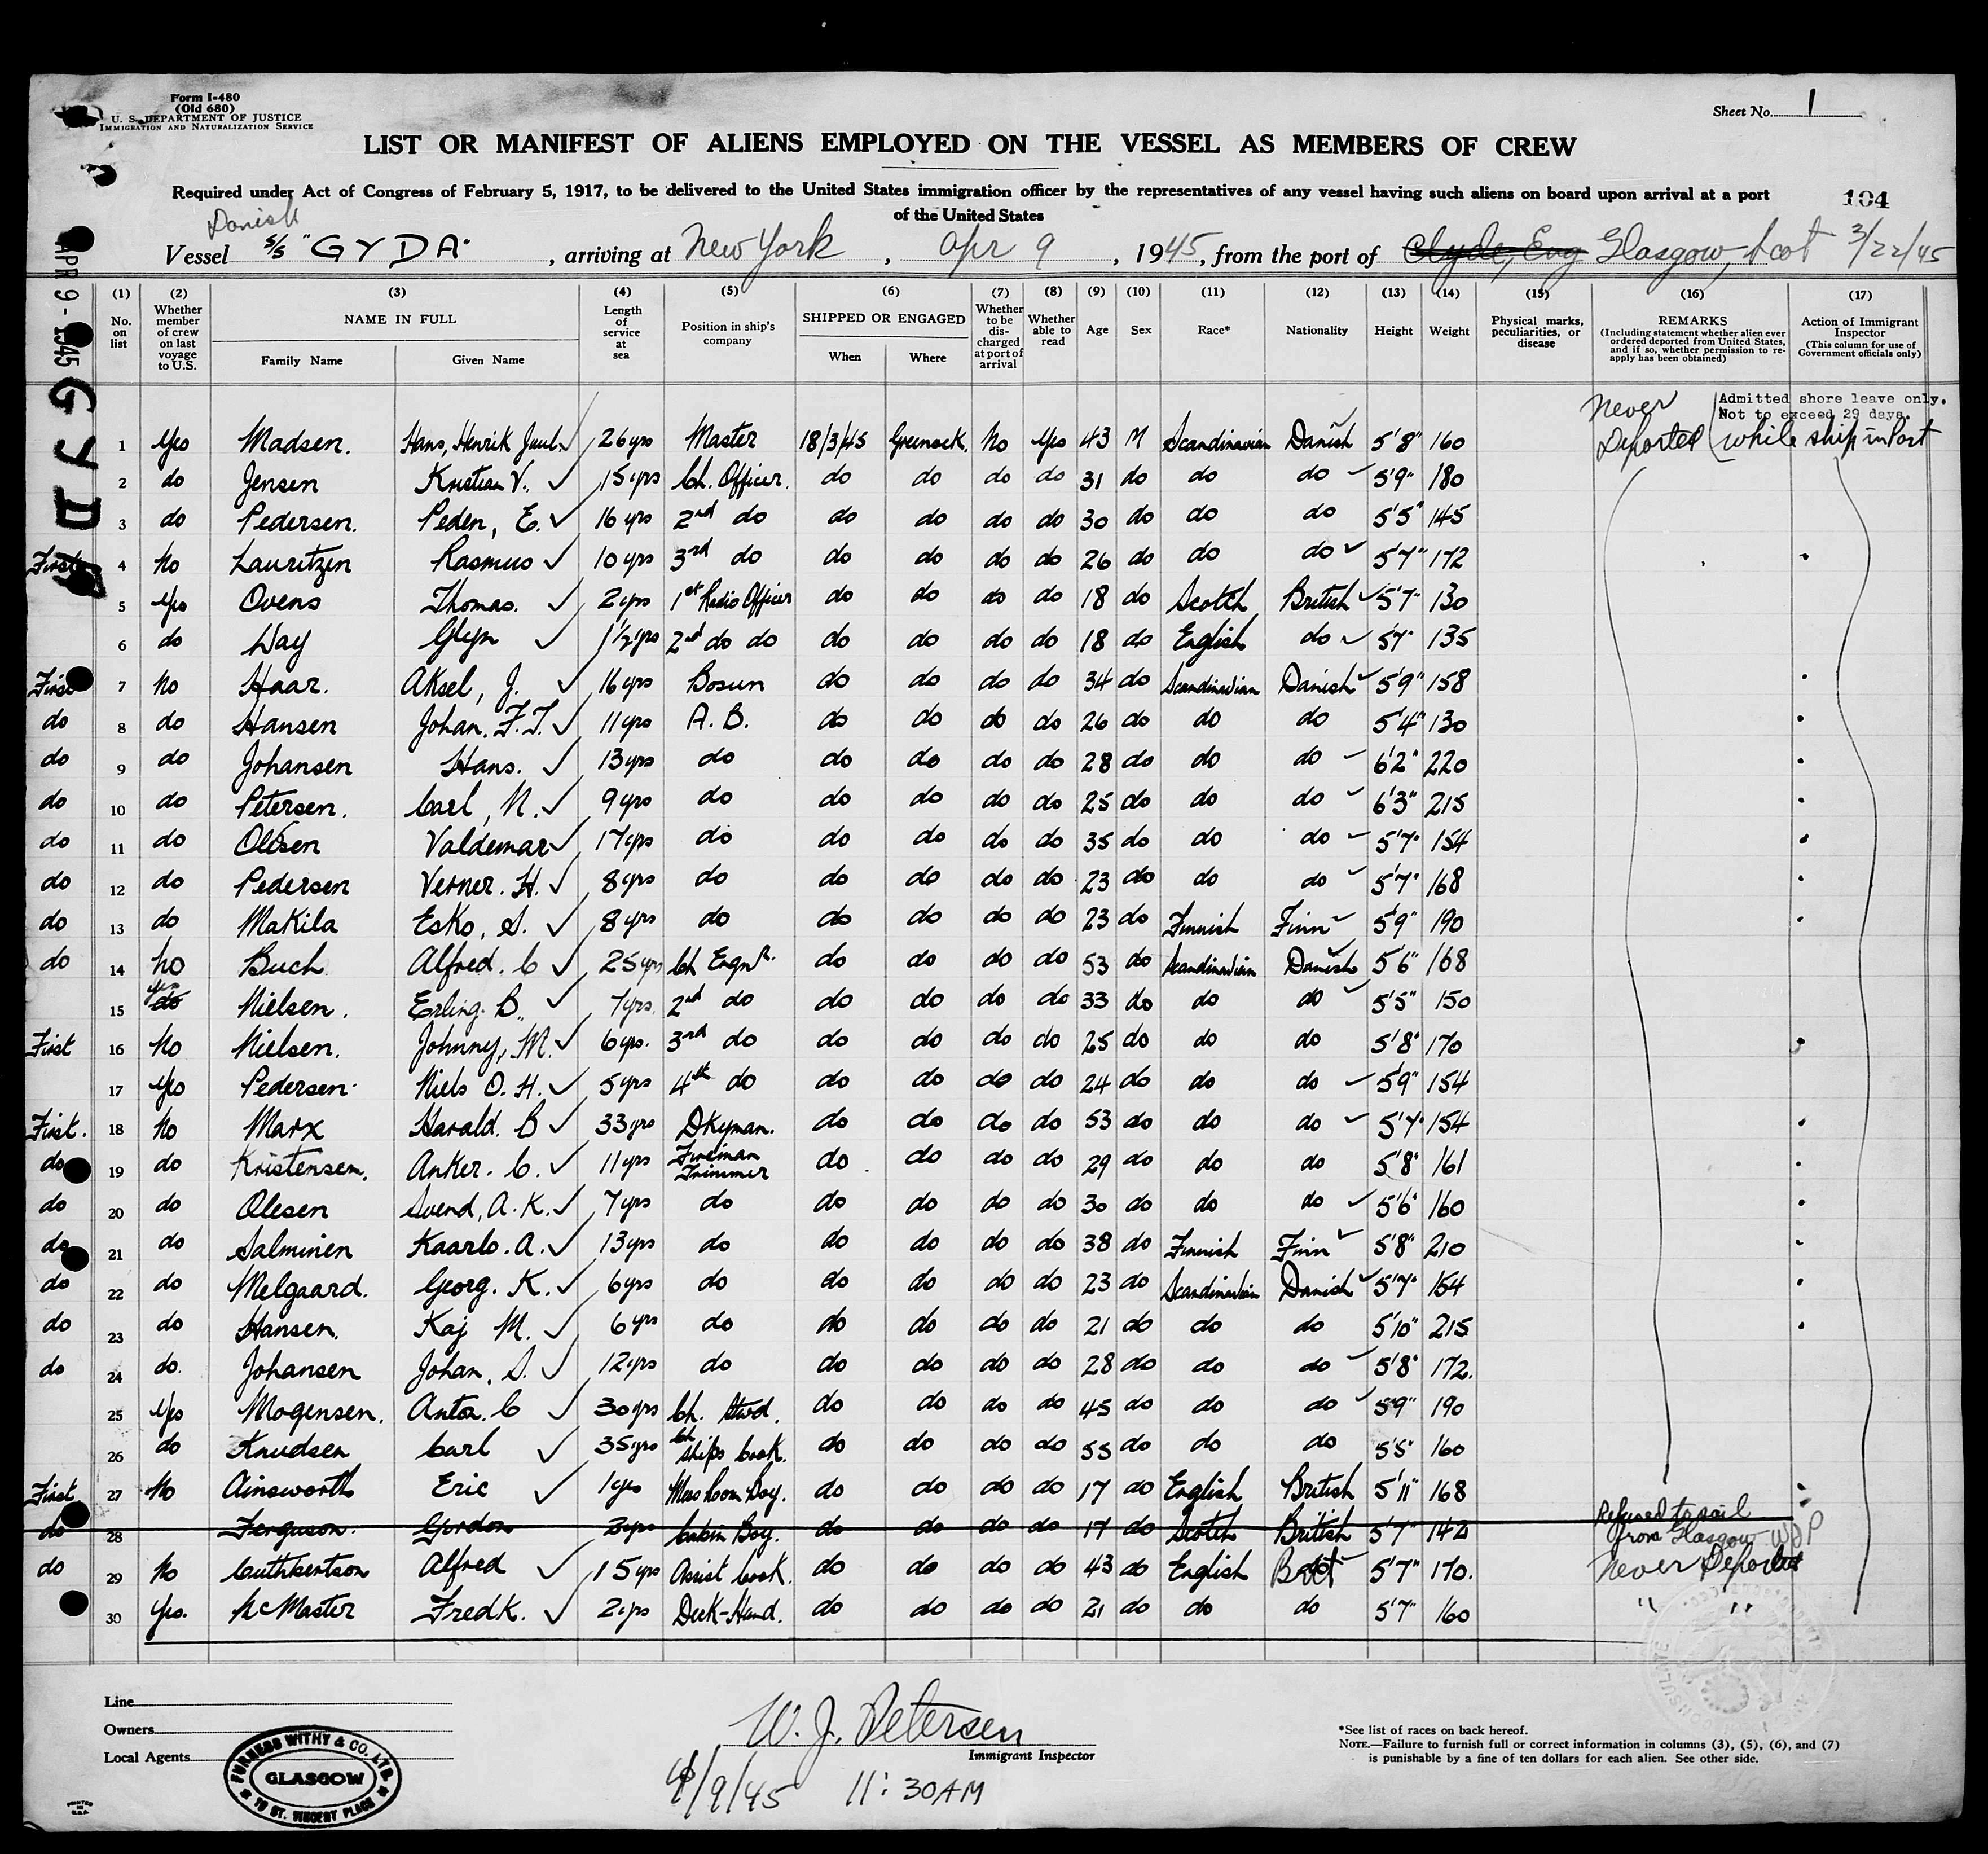 Form I-480
(Old 680)
U. S. DEPARTMENT OF JUSTICE
IMMIGRATION AND NATURALIZATION SERVICE
Sheet No. 1
LIST OR MANIFEST OF ALIENS EMPLOYED ON THE VESSEL AS MEMBERS OF CREW
Required under Act of Congress of February 5, 1917, to be delivered to the United States immigration officer by the representatives of any vessel having such aliens on board upon arrival at a port
of the United States
104
Danish
Vessel S/S "GYDA", arriving at New York, Apr 9, 1945, from the port of Clyde, Eng Glasgow, Scot 3/22/45
APR 9 - 1945 GYDA
(1) No. on list
(2) Whether member of crew on last voyage to U.S.
(3) NAME IN FULL
Family Name
Given Name
(4) Length of service at sea
(5) Position in ship's company
(6) SHIPPED OR ENGAGED
When
Where
(7) Whether to be discharged at port of arrival
(8) Whether able to read
(9) Age
(10) Sex
(11) Race*
(12) Nationality
(13) Height
(14) Weight
(15) Physical marks, peculiarities, or disease
(16) REMARKS
(Including statement whether alien ever ordered deported from United States, and if so, whether permission to re-apply has been obtained)
(17) Action of Immigrant Inspector
(This column for use of Government officials only)
Admitted shore leave only.
Not to exceed 29 days.
while ship in Port
1 Yes Madsen. Hans, Henrik Juul 26 yrs Master 18/3/45 Greenock. No Yes 43 M Scandinavian Danish 5'8" 160 Never Deported
2 do Jensen Kristian V. 15 yrs Ch. Officer. do do do do 31 do do do 5'9" 180
3 do Pedersen. Peden, E. 16 yrs 2nd do do do do do 30 do do do 5'5" 145
First 4 No Lauritzen Rasmus 10 yrs 3rd do do do do do 26 do do do 5'7" 172
5 Yes Ovens Thomas. 2 yrs 1st Radio Officer do do do do 18 do Scotch British 5'7" 130
6 do Day Glyn 1 1/2 yrs 2nd do do do do do do 18 do English do 5'7" 135
First 7 No Haar. Aksel, J. 16 yrs Bosun do do do do 34 do Scandinavian Danish 5'9" 158
do 8 do Hansen Johan. F.T. 11 yrs A. B. do do do do 26 do do do 5'4" 130
do 9 do Johansen Hans. 13 yrs do do do do do 28 do do do 6'2" 220
do 10 do Petersen. Carl, N. 9 yrs do do do do do 25 do do do 6'3" 215
do 11 do Olesen Valdemar 17 yrs do do do do do 35 do do do 5'7" 154
do 12 do Pedersen Verner. H. 8 yrs do do do do do 23 do do do 5'7" 168
do 13 do Makila Esko, S. 8 yrs do do do do do 23 do Finnish Finn 5'9" 190
do 14 No Buch Alfred. C 25 yrs Ch Engnr. do do do do 53 do Scandinavian Danish 5'6" 168
15 do yes Nielsen. Erling. B. 7 yrs. 2nd do do do do do 33 do do do 5'5" 150
First 16 No Nielsen. Johnny, M. 6 yrs. 3rd do do do do do 25 do do do 5'8" 170
17 Yes Pedersen Niels O. H. 5 yrs 4th do do do do do 24 do do do 5'9" 154
First. 18 No Marx Harald. B 33 yrs Dkyman. do do do do 53 do do do 5'7" 154
do 19 do Kristensen. Anker. C. 11 yrs Fireman Trimmer do do do do 29 do do do 5'8" 161
do 20 do Olesen Svend, A. K. 7 yrs do do do do do 30 do do do 5'6" 160
do 21 do Salminen Kaarlo. A. 13 yrs do do do do do 38 do Finnish Finn 5'8" 210
do 22 do Melgaard. Georg. K. 6 yrs do do do do do 23 do Scandinavian Danish 5'7" 154
do 23 do Hansen. Kaj M. 6 yrs do do do do do 21 do do do 5'10" 215
do 24 do. Johansen Johan, S. 12 yrs do do do do do 28 do do do 5'8" 172.
25 Yes Mogensen. Anton. C 30 yrs Ch. Stwd. do do do do 45 do do do 5'9" 190
26 do Knudsen Carl 35 yrs Ch Ships Cook. do do do do 55 do do do 5'5" 160
First 27 No Ainsworth Eric 1 yrs Mess Room Boy. do do do do 17 do English British 5'11" 168
do 28 Ferguson. Gordon 2 yrs Cabin Boy. do do do do 17 do Scotch British 5'7" 142 Refused to sail from Glasgow WJP
do 29 No Cuthbertson Alfred 15 yrs Assist Cook. do do do do 43 do English Brit 5'7" 170. Never Deported
30 Yes. McMaster Fredk. 2 yrs Deck-Hand. do do do do 21 do do do 5'7" 160 " "
Line
Owners
Local Agents
FURNESS WITHY & CO. LTD.
GLASGOW
70 ST. VINCENT PLACE
W. J. Petersen
Immigrant Inspector
4/9/45 11:30 AM
*See list of races on back hereof.
NOTE.—Failure to furnish full or correct information in columns (3), (5), (6), and (7)
is punishable by a fine of ten dollars for each alien. See other side.
PRINTED IN U.S.A.